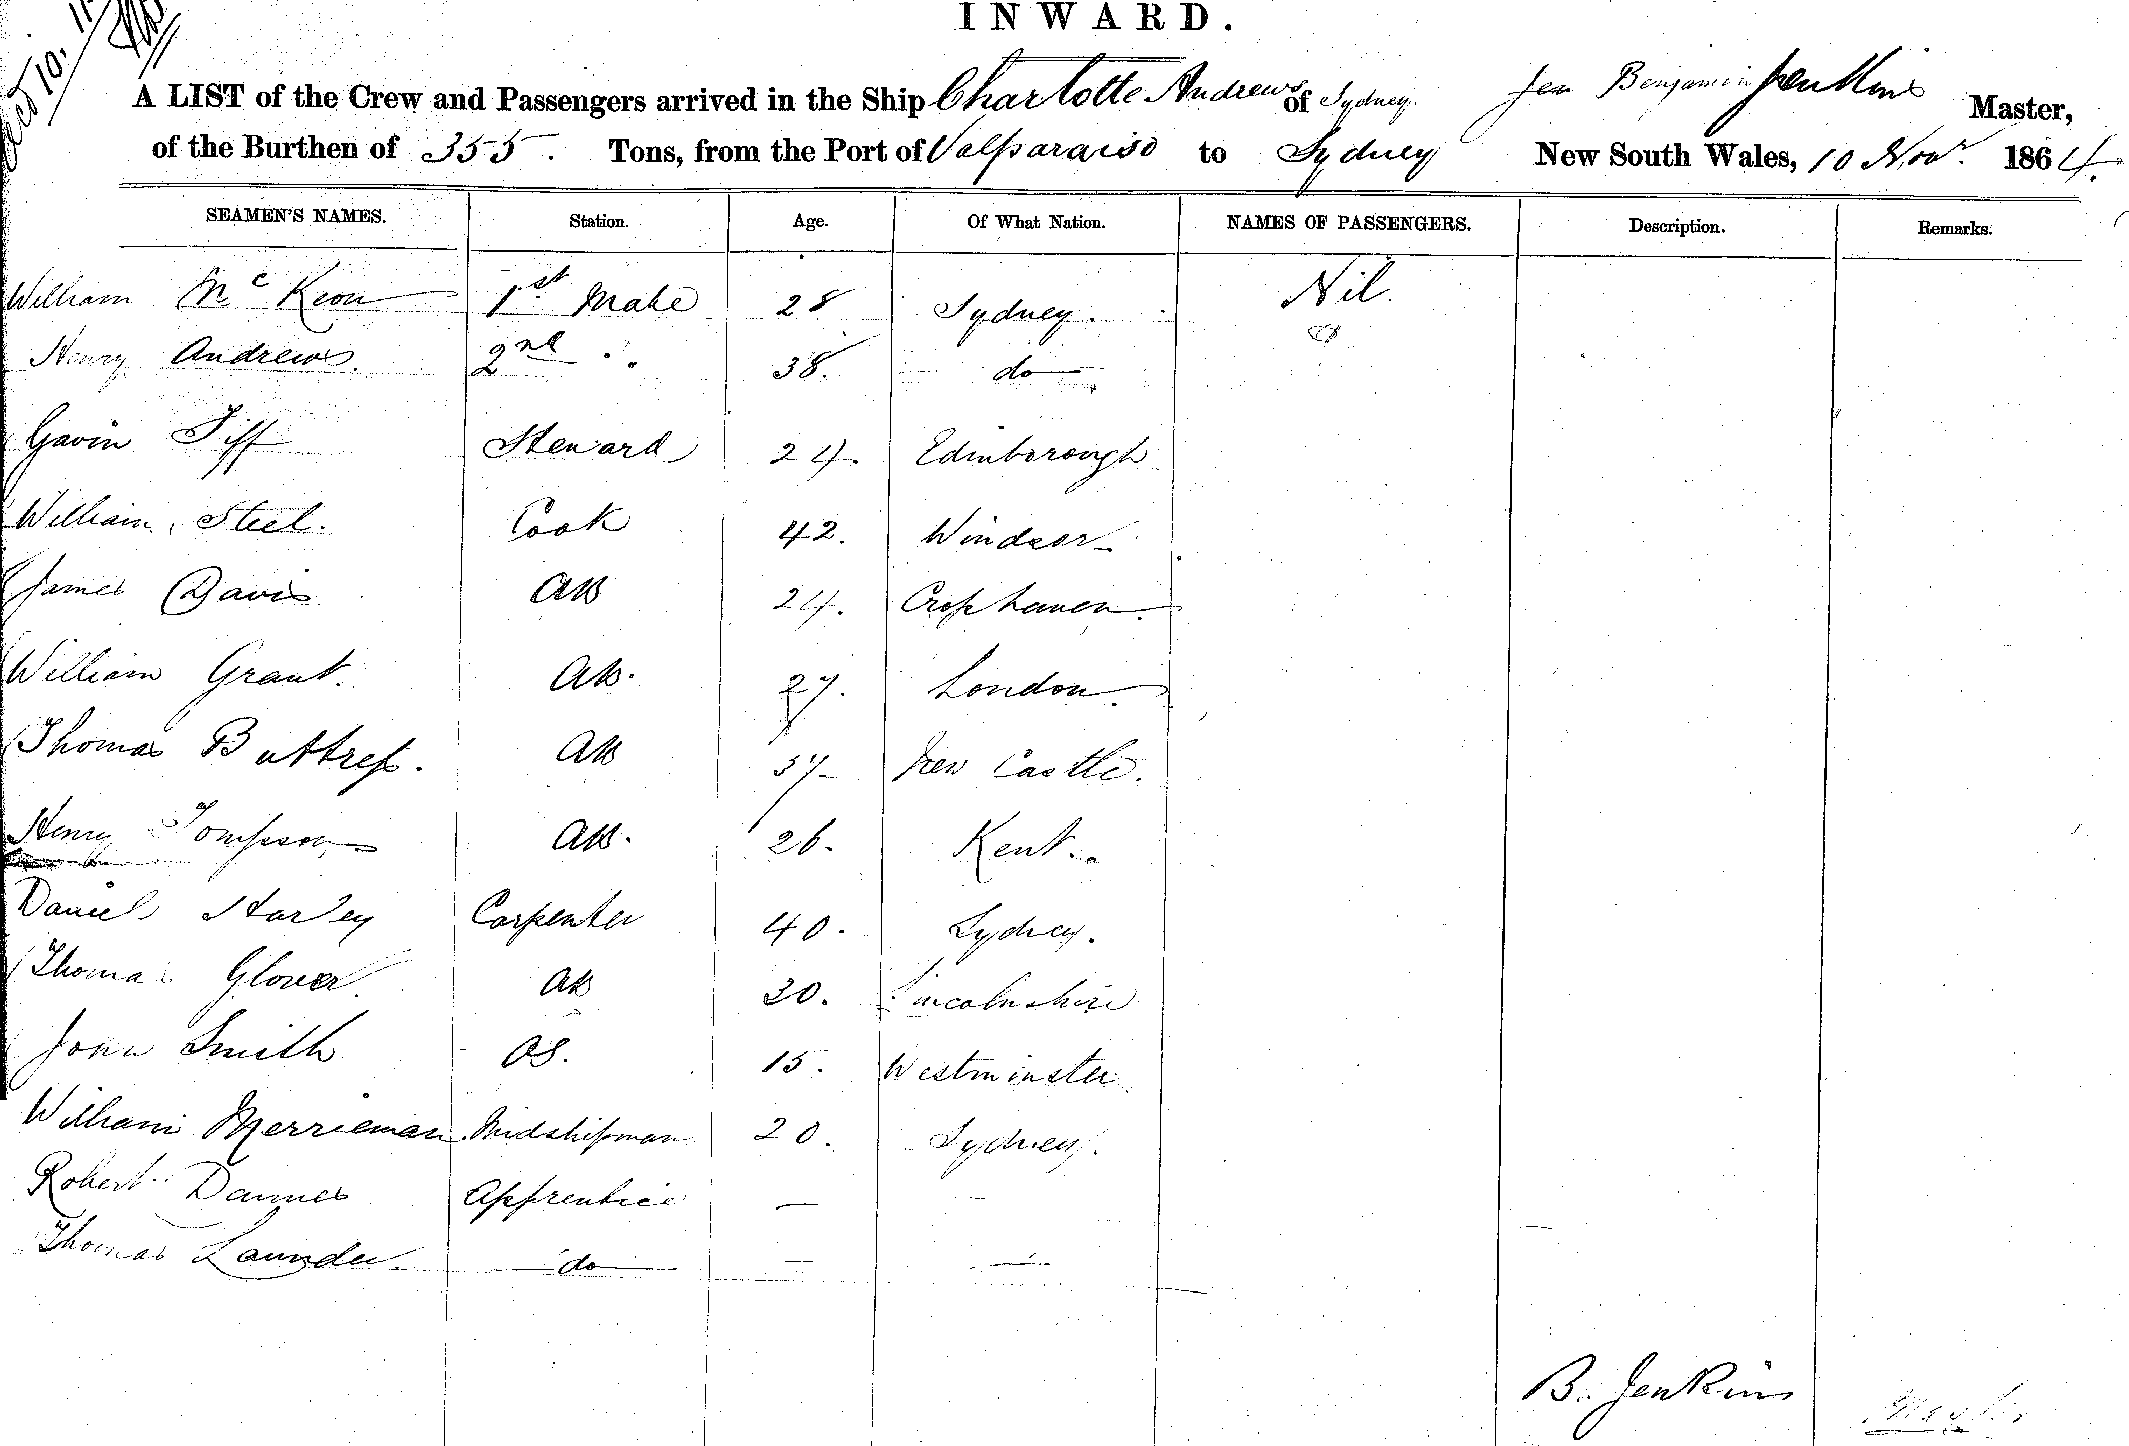 INWARD.
A LIST of the Crew and Passengers arrived in the Ship Charlotte Andrews of Sydney Jen Benjamin Jenkins Master,
of the Burthen of 355. Tons, from the Port of Valparaiso to Sydney New South Wales, 10 Novr. 1864.
SEAMEN'S NAMES. Station. Age. Of What Nation. NAMES OF PASSENGERS. Description. Remarks.
William Mc Keon 1st Mate 28 Sydney. Nil.
Henry Andrews. 2nd " 38. do
Gavin Tiff Steward 24. Edinborough
William Steel. Cook 42. Windsor
James Davis AB 24. Crophaven.
William Grant. AB. 27. London.
Thomas Buttress. AB 37 New Castle.
Henry Tompson AB. 26. Kent.
Daniel Harley Carpenter 40. Sydney.
Thomas Glover. AB 30. Lincolnshire
John Smith OS. 15. Westminster
William Merrieman Midshipman 20. Sydney.
Robert Dannes Apprentice —
Thomas Launder do — —
B. Jenkins Master